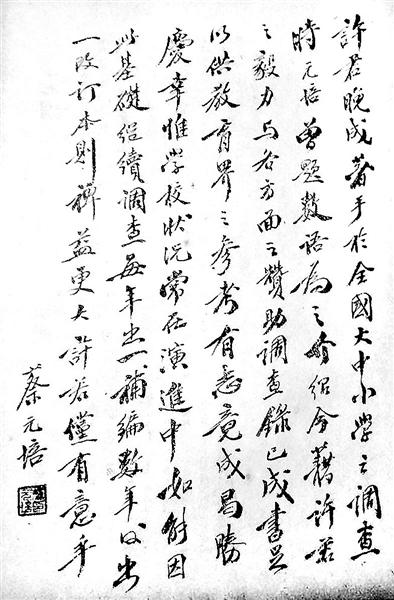 許君晚成著手於全國大中小學之調查
時元培曾題數語為之介紹今藉許君
之毅力与各方面之贊助調查錄已成書足
以供教育界之參考有志竟成曷勝
慶幸惟學校狀況常在演進中如能因
此基礎繼續調查每年出一補編數年後出
一改訂本則裨益更大許君僅有意乎
蔡元培